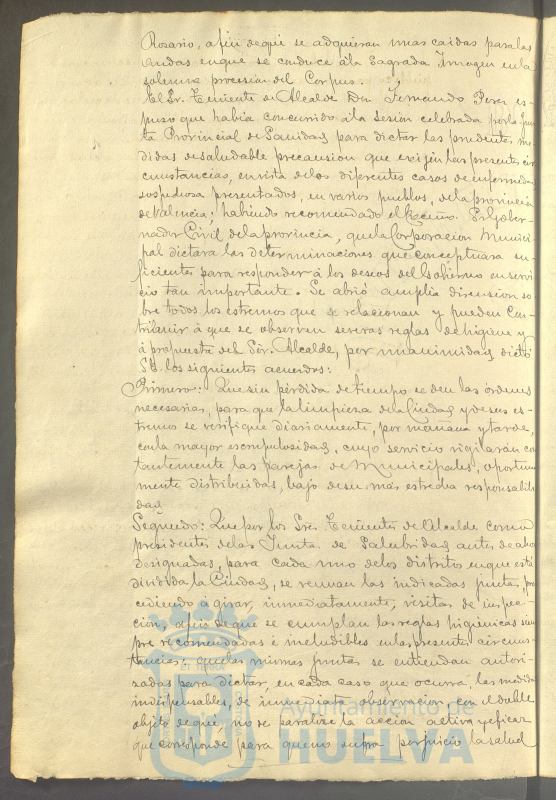 Rosario, a fin de que se adquieran unas caidas para las
andas en que se conduce á la Sagrada Imagen en la
solemne procesion del Corpus.
El Sr. Teniente de Alcalde Don Fernando Perez es-
puso que habia concurrido á la sesión celebrada por la Jun-
ta Provincial de Sanidad para dictar las prudentes me-
didas de saludable precaucion que exijen las presentes cir-
cunstancias, en vista de los diferentes casos de enfermedad
sospechosa presentados, en varios pueblos, de la provincia
de Valencia; habiendo recomendado el Excmo. Sr. Gober-
nador Civil de la provincia, que la Corporacion Munici-
pal dictara las determinaciones que conceptuara su-
ficientes para responder á los deseos del Gobierno en servi-
cio tan importante. Se abrió amplia discusion so-
bre todos los estremos que se relacionan y pueden con-
tribuir á que se observen severas reglas de higiene y
á propuesta del Sór. Alcalde, por unanimidad, dictó
S.E. los siguientes acuerdos:
Primero: Que sin pérdida de tiempo se den las órdenes
necesarias, para que la limpieza de la Ciudad y de sus es-
tremos se verifique diariamente, por mañana y tarde,
con la mayor escrupulosidad, cuyo servicio vigilarán cons-
tantemente las parejas de Municipales, oportuna-
mente distribuidas, bajo de su más estrecha responsabili-
dad
Segundo: Que por los Sres. Tenientes de Alcalde como
presidentes de las Juntas de Salubridad, antes de ahora
designadas, para cada uno de los distritos en que está
dividida la Ciudad, se reunan las indicadas juntas, pro-
cediendo a girar, inmediatamente, visitas de inspec-
ción, a fin de que se cumplan las reglas higiénicas siem-
pre recomendadas é ineludibles en la presente circuns-
tancias: que las mismas juntas se entiendan autori-
zadas para dictar, en cada caso que ocurra, las medidas
indispensables, de inmediata observancia, con el doble
objeto de que, no se paralice la acción activa y eficaz
que corresponde para que no sufra perjuicio la salud
Ayuntamiento de
HUELVA